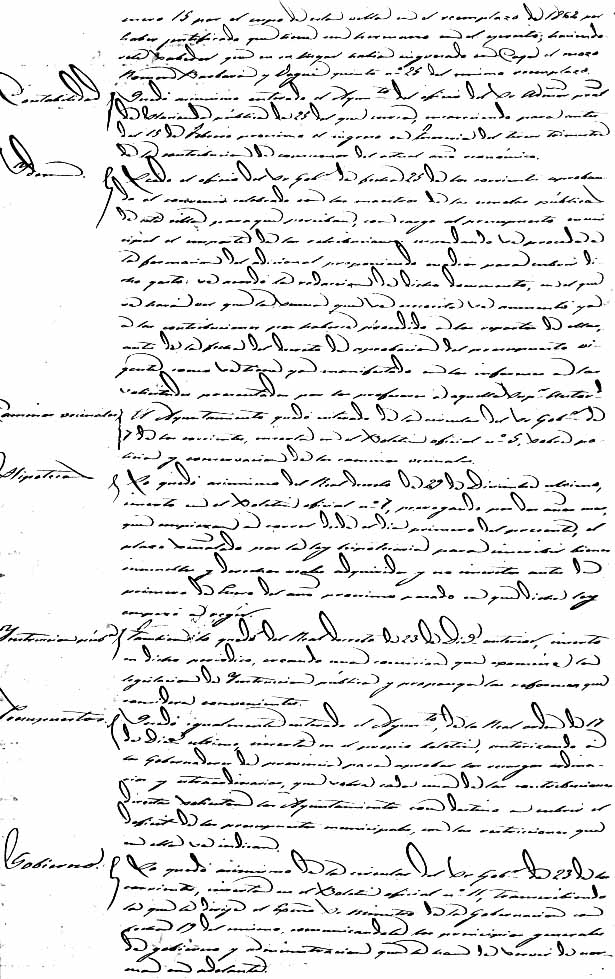 enero 15 por el cupo de esta villa en el reemplazo de 1862 por
haber justificado que tiene un hermano en el ejercito; haciendo
saber que en su lugar habia ingresado en Caja el mozo
Roman Barbera y quinto nº 25 del mismo reemplazo.
Contabilidad
Quedó asimismo enterado el Ayunt.to del oficio del Sr. Admor. pral
de Hacienda pública de 25 del que cursa, para antes
del 15 de Febrero procsimo el ingreso en Tesoreria del tercer trimestre
de la contribucion de consumos del actual año económico.
Idem.
Leido el oficio del Sr. Gob.or de fecha 23 de los corrientes aproban-
do el convenio celebrado con los maestros de las escuelas públicas
de esta villa para que perciban, con cargo al presupuesto muni-
cipal el importe de las retribuciones, mandando se proceda á
la formacion del adicional proponiendo medios para cubrir di-
cho gasto: se acordó la redaccion de dicho documento, en el que
se hará ver que la suma que se necesita se aumentó ya
á las contribuciones por haberse procedido á los repartos de ellas,
antes de la fecha del decreto de aprobacion del presupuesto vi-
gente, como se tiene ya manifestado en los informes á las
solicitudes presentadas por los profesores á aquella Sup.or Autorid.
Caminos vecinales
El Ayuntamiento, quedó enterado de la circular del Sr. Gob.or de
7 de los corrientes, inserta en el Boletin oficial nº 5, sobre po-
licia y conservacion de los caminos vecinales.
Hipotecas
Lo quedó asimismo del Real decreto de 29 de Diciembre ultimo,
inserto en el Boletin oficial nº 7, prorogando por un año mas,
que empieza á correr desde el dia primero del presente, el
plazo señalado por la ley hipotecaria para inscribir bienes
inmuebles y derechos reales adquiridos y no inscritos antes de
primero de Enero del año procsimo pasado en que dicha ley
empezó á regir.
Instruccion púb.ca
Tambien lo quedó del Real decreto de 23 de Dic.e anterior, inserto
en dicho periodico, creando una comision que ecsamine la
legislacion de Instruccion pública y proponga las reformas que
considere convenientes.
Presupuestos
Quedó igualmente enterado el Ayunt.to de la Real orden de 17
de Dic.e ultimo, inserta en el mismo boletin, autorizando á
los Gobernadores de provincia para aprobar los recargos ordina-
rios y estraordinarios, que sobre cada una de las contribuciones
directas soliciten los Ayuntamientos con destino á cubrir el
deficit de los presupuestos municipales, con las restricciones que
en ella se indican.
Gobierno.
Lo quedó asimismo de la circular del Sr. Gob.or de 23 de los
corrientes, inserta en el Boletin oficial nº 11, transcribiendo
la que le dirige el Escmo. Sr. Ministro de la Gobernacion con
fecha 19 del mismo, comunicandole los principios generales
de gobierno y administracion que le han de servir de nor-
ma en adelante.